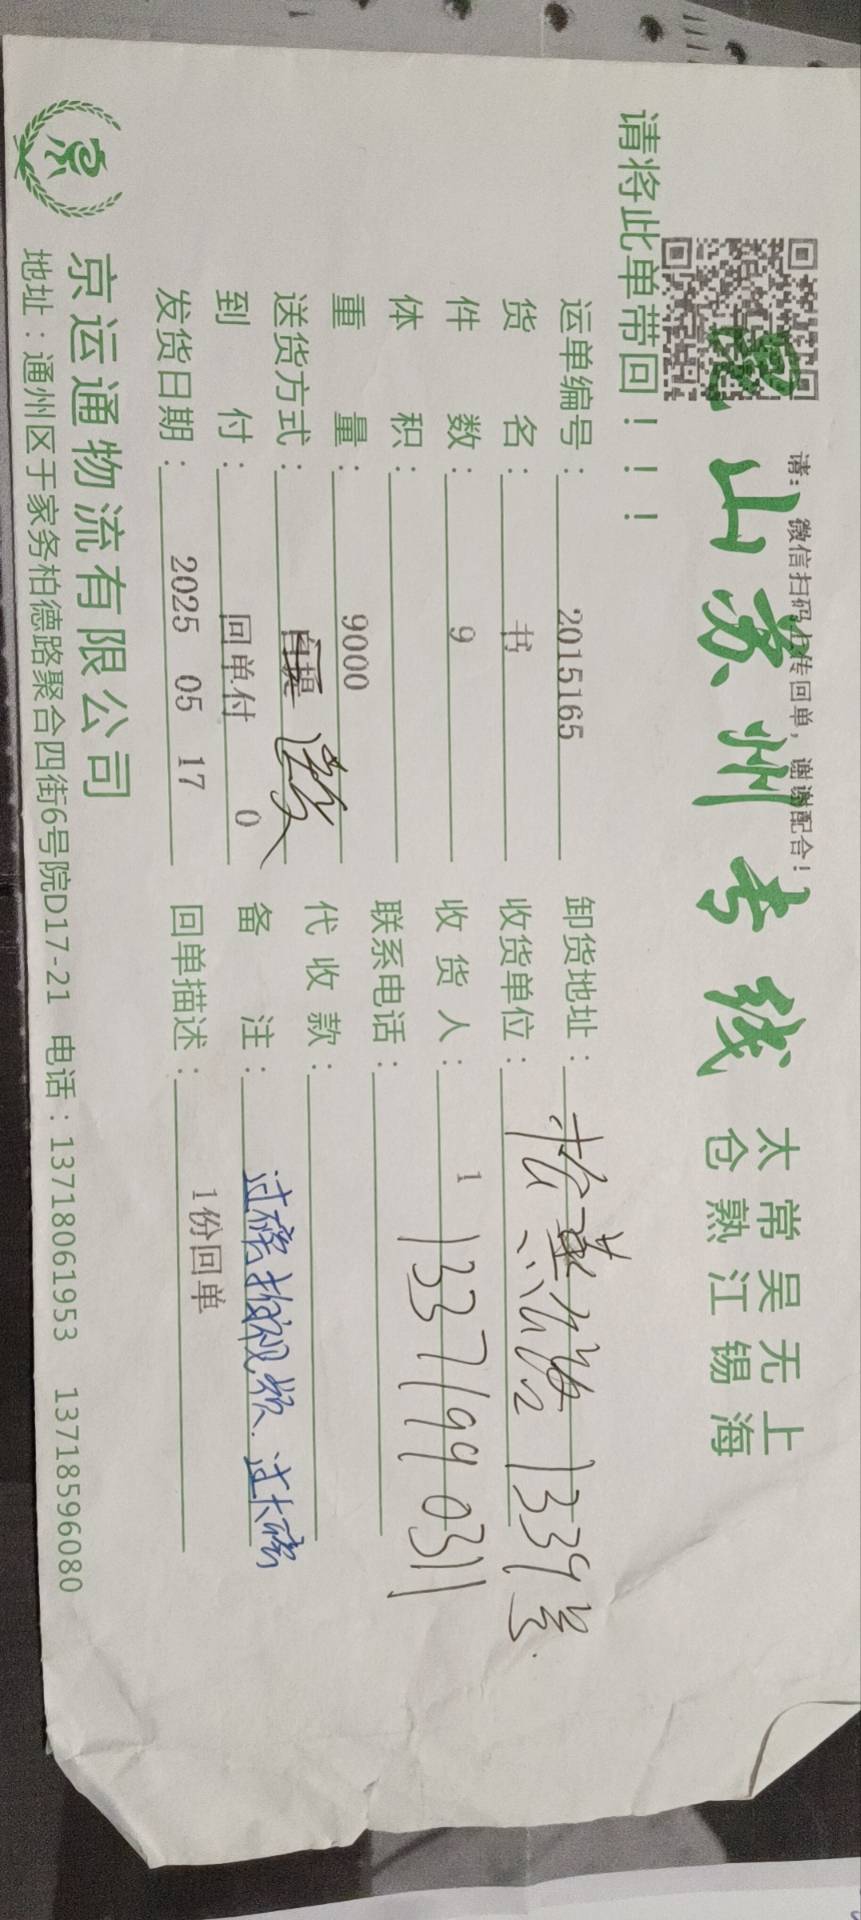 请: 微信扫码上传回单, 谢谢配合!
昆山苏州专线
太 常 吴 无 上
仓 熟 江 锡 海
请将此单带回!!!
运单编号: 2015165
卸货地址:
货名: 书
收货单位: 1339号
件数: 9
收货人: 1
13371990311
体积:
联系电话:
重量: 9000
代收款:
送货方式: 自提 送
备注: 过磅拍视频. 过大磅
到付: 回单付 0
回单描述: 1份回单
发货日期: 2025 05 17
京运通物流有限公司
地址:通州区于家务柏德路聚合四街6号院D17-21 电话:13718061953 13718596080